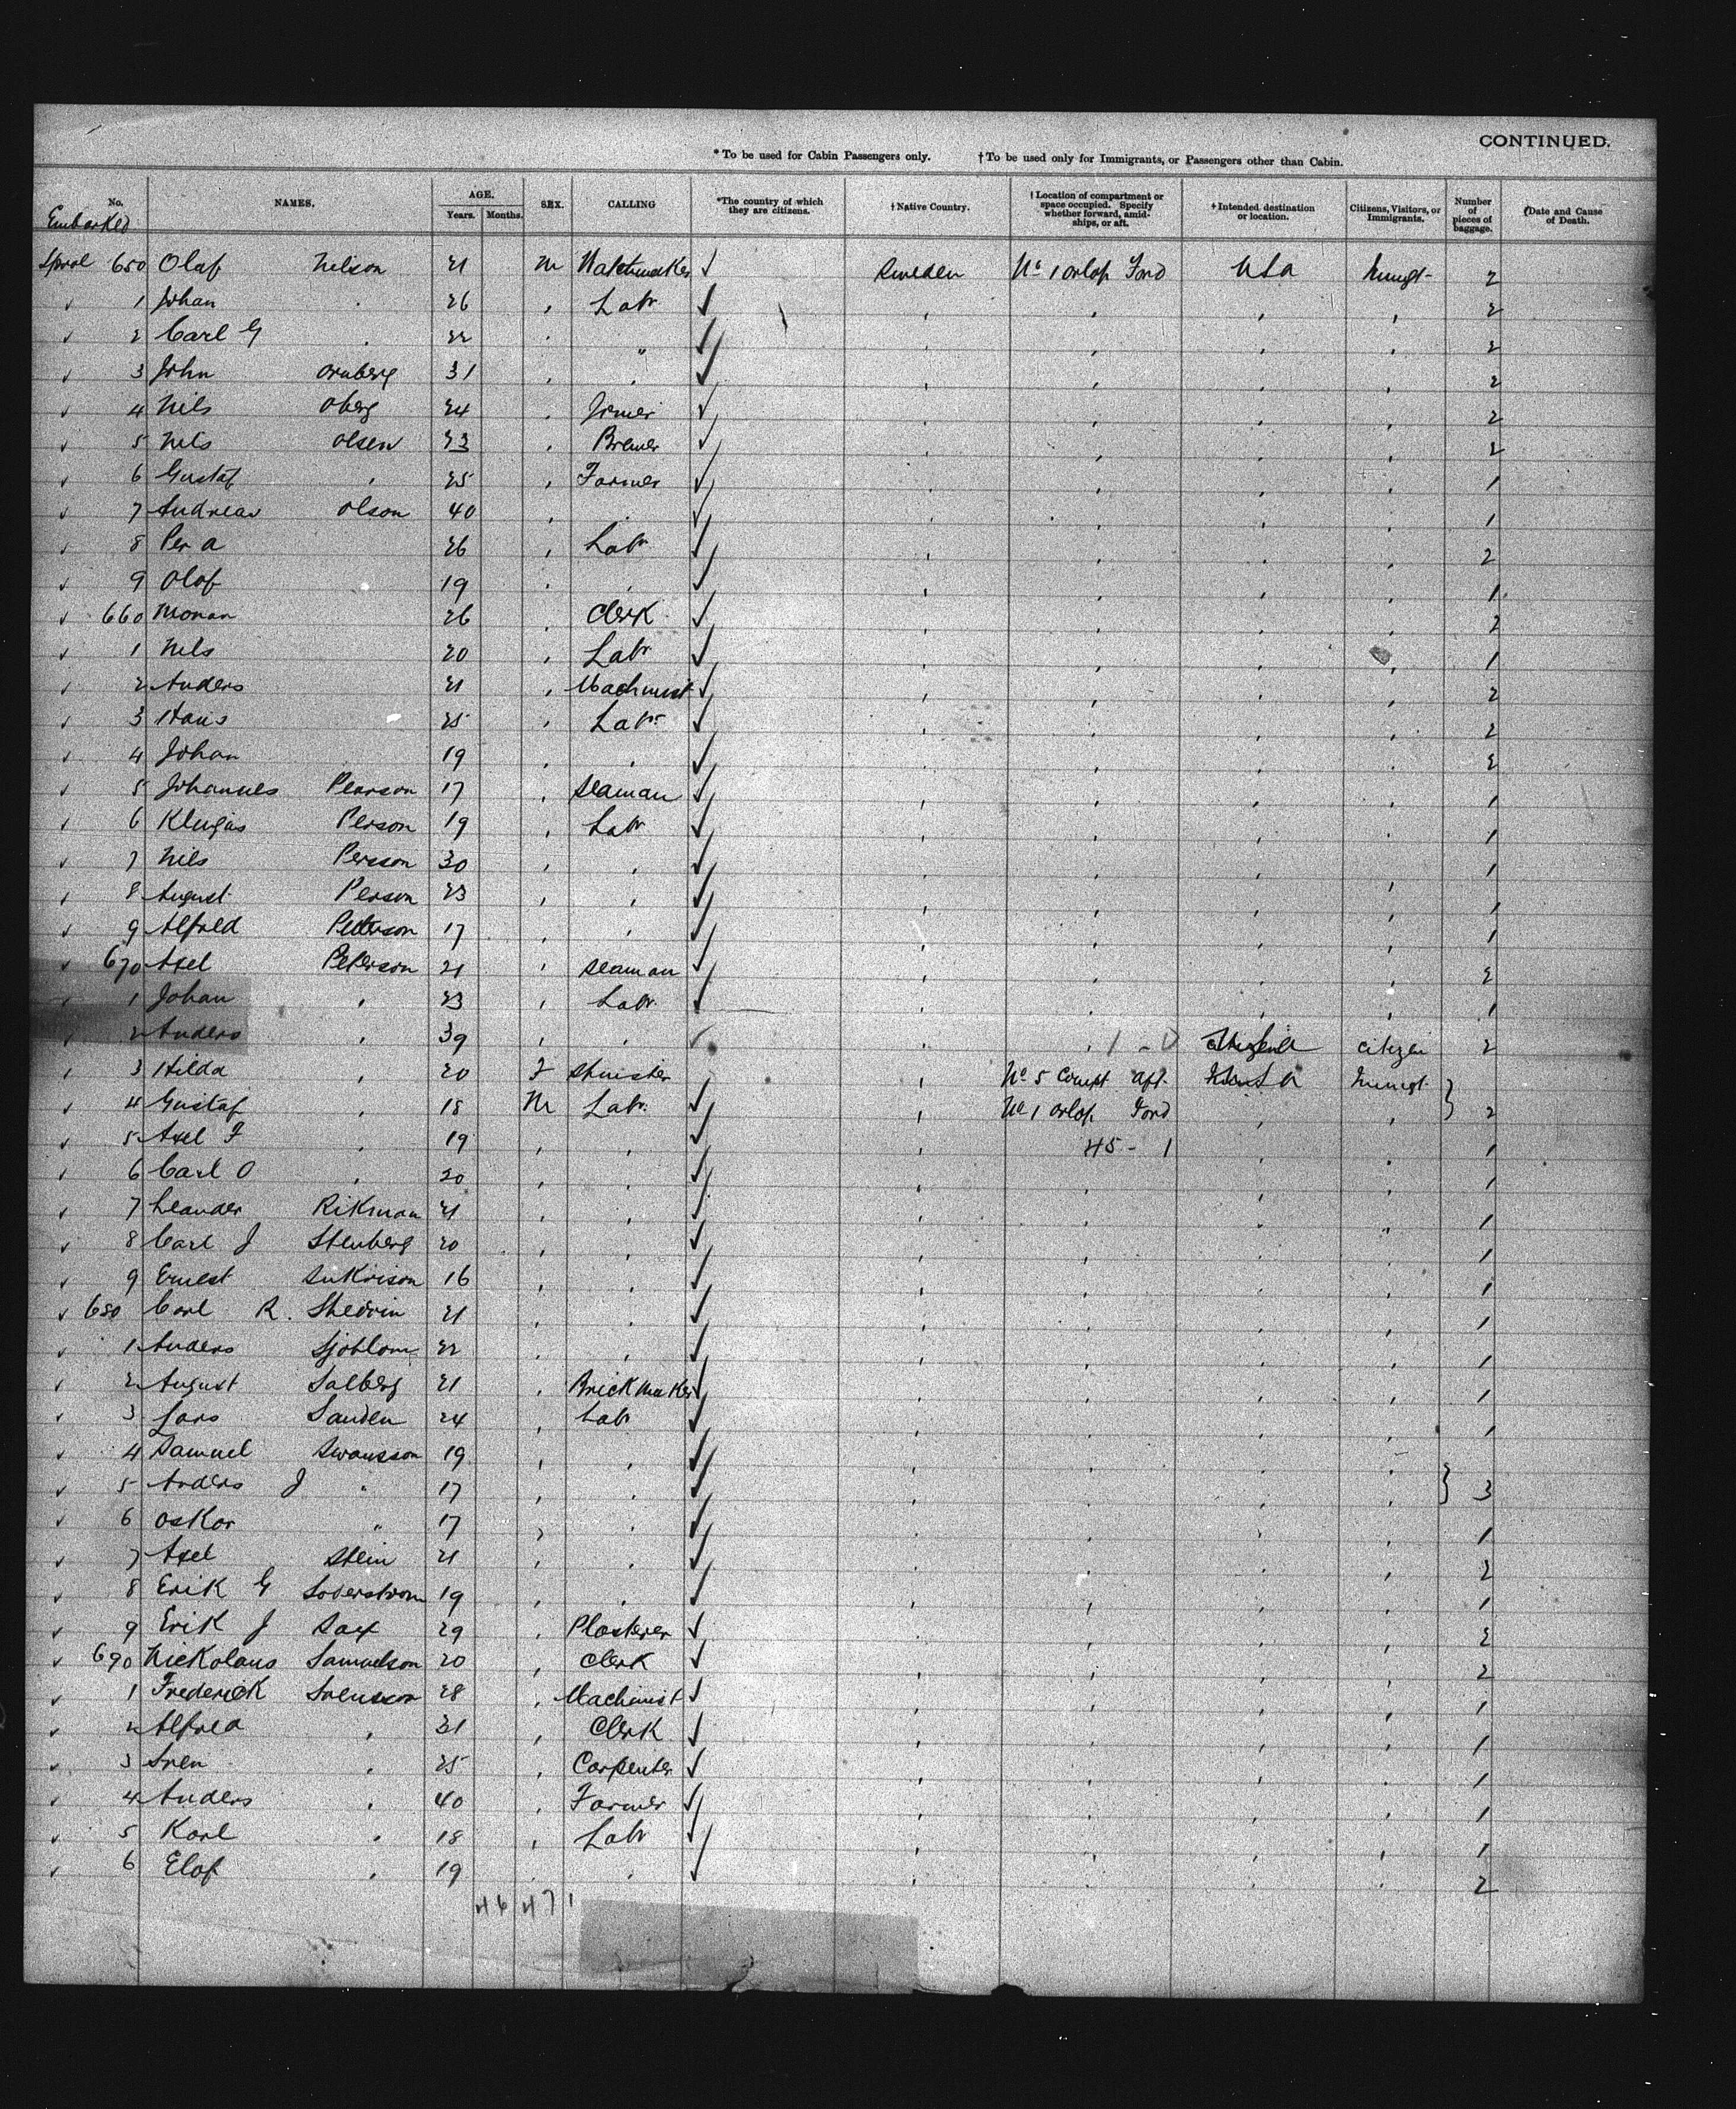 CONTINUED.
* To be used for Cabin Passengers only. † To be used only for Immigrants, or Passengers other than Cabin.
No. NAMES. AGE. Years. Months. SEX. CALLING *The country of which they are citizens. †Native Country. †Location of compartment or space occupied. Specify whether forward, amidships, or aft. †Intended destination or location. Citizens, Visitors, or Immigrants. Number of pieces of baggage. †Date and Cause of Death.
Embarked
650 Olaf Nelson 21 M Watchmaker ✓ Sweden No 1 orlop Ford USA Immgt 2
✓ 1 Johan . 26 , Labr ✓ , , , , 2
✓ 2 Carl G . 22 . " ✓ , , , , 2
✓ 3 John 31 , , ✓ , , , , 2
✓ 4 Nils Oberg 24 , ✓ , , , , 2
✓ 5 Nels Olsen 23 , ✓ , , , , 2
✓ 6 Gustaf , 25 , Farmer ✓ , , , , 1
✓ 7 Andreas Olson 40 , . ✓ , , , , 1
✓ 8 Per A 26 , Labr ✓ , , , , 2
✓ 9 Olof 19 . , ✓ , , , , 1
✓ 660 26 , Clerk ✓ , , , , 2
✓ 1 Nels 20 , Labr ✓ , , , , 1
✓ 2 Anders 21 , Machinist ✓ , , , , 2
✓ 3 Hans 25 , Labr ✓ , , , , 2
✓ 4 Johan 19 , , ✓ , , , , 2
✓ 5 Johannes Pearson 17 , Seaman ✓ , , , , 1
✓ 6 Person 19 , Labr ✓ , , , , 1
✓ 7 Nils Persson 30 , , ✓ , , , , 1
✓ 8 August Person 23 , , ✓ , , , , 1
✓ 9 Alfred Petterson 17 , , ✓ , , , , 1
✓ 670 Axel Peterson 21 , Seaman ✓ , , , , 2
✓ 1 Johan , 23 , Labr ✓ , , , , 1
✓ 2 Anders , 39 , , ✓ , , 1 - 0 Citizen 2
, 3 Hilda , 20 F Spinster , No 5 Compt aft. USA Immgt }
✓ 4 Gustaf , 18 M Labr ✓ , No 1 orlop Ford , , 2
✓ 5 Axel F , 19 , , ✓ , 45 - 1 , , 1
✓ 6 Carl O , 20 , , ✓ , , , , 1
✓ 7 Leander Rikman 21 , , ✓ , , , , 1
✓ 8 Carl J Stenberg 20 , , ✓ , , , , 1
✓ 9 Ernest 16 , , ✓ , , , , 1
✓ 680 Carl R. 21 , , ✓ , , , , 1
✓ 1 Anders Sjoblom 22 , , ✓ , , , , 1
✓ 2 August Salberg 21 , Brickmaker ✓ , , , , 1
✓ 3 Lars Sanden 24 , Labr ✓ , , , , 1
✓ 4 Samuel Swansson 19 , , ✓ , , , , }
✓ 5 Anders J " 17 , , ✓ , , , , 3
✓ 6 Oskar " 17 , , ✓ , , , , 1
✓ 7 Axel Stein 21 , , ✓ , , , , 2
✓ 8 Erik G Soderstrom 19 , , ✓ , , , , 1
✓ 9 Erik J Sax 29 , Plasterer ✓ , , , , 2
✓ 690 Nickolaus Samuelson 20 , Clerk ✓ , , , , 2
✓ 1 Frederick Svensson 28 , Machinist ✓ , , , , 1
✓ 2 Alfred , 31 , Clerk ✓ , , , , 1
✓ 3 Sven , 25 , Carpenter ✓ , , , , 1
✓ 4 Anders , 40 , Farmer ✓ , , , , 1
✓ 5 Karl , 18 , Labr ✓ , , , , 1
✓ 6 Elof , 19 , , ✓ , , , , 2
46 47 1